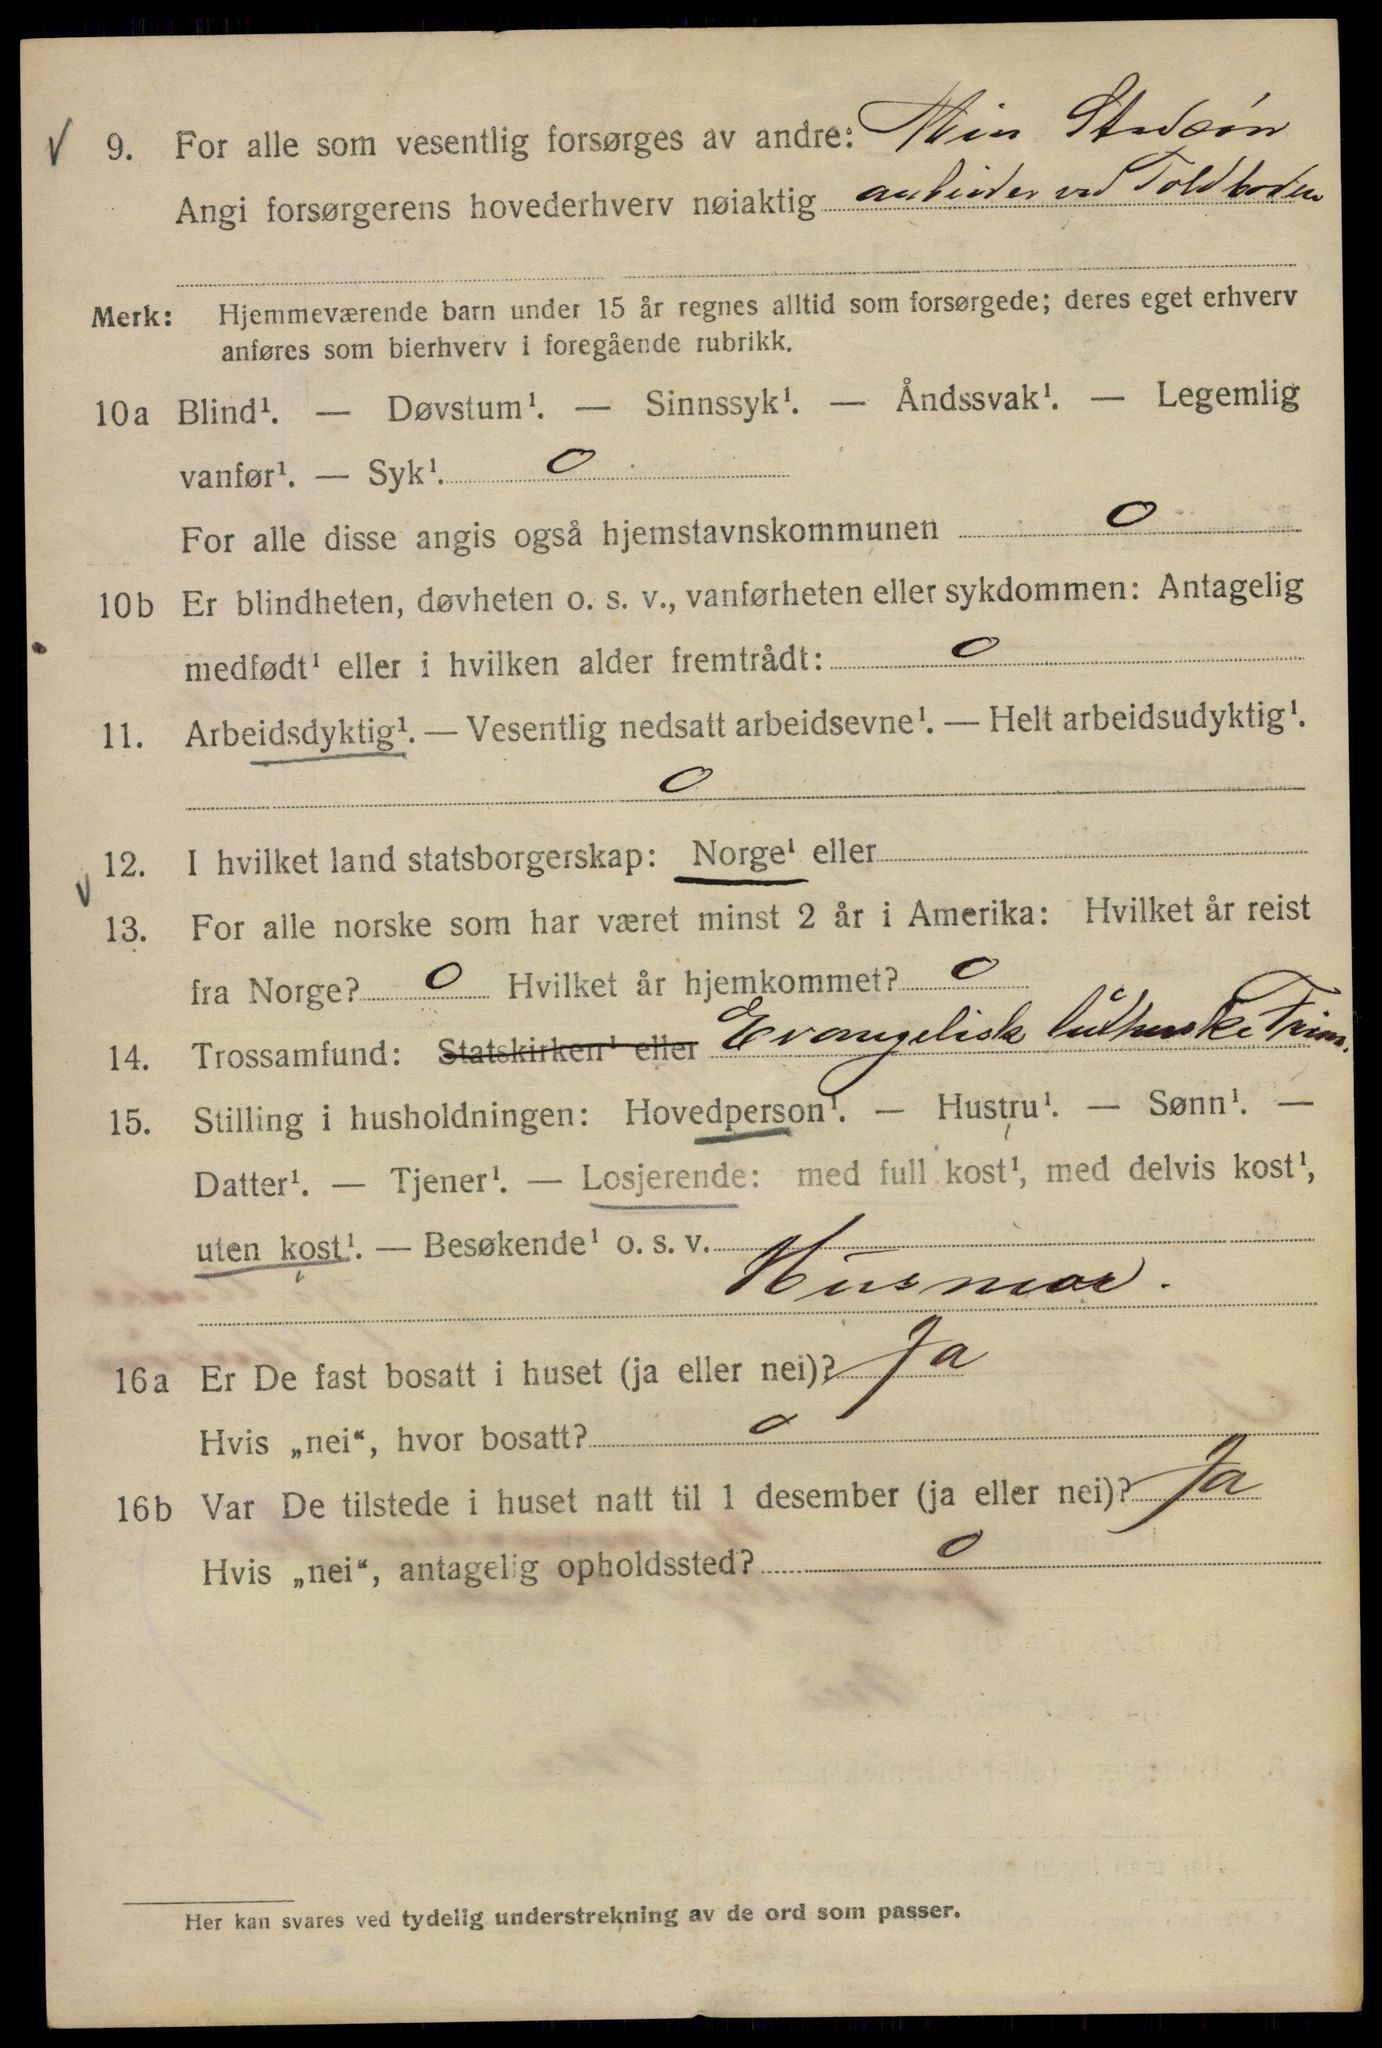 9. For alle som vesentlig forsørges av andre: Min Stedsøn
Angi forsørgerens hovederhverv nøiaktig arbeider ved Toldboden
Merk: Hjemmeværende barn under 15 år regnes alltid som forsørgede; deres eget erhverv
anføres som bierhverv i foregående rubrikk.
10a Blind¹. — Døvstum¹. — Sinnssyk¹. — Åndssvak¹. — Legemlig
vanfør¹. — Syk¹. 0
For alle disse angis også hjemstavnskommunen 0
10b Er blindheten, døvheten o. s. v., vanførheten eller sykdommen: Antagelig
medfødt¹ eller i hvilken alder fremtrådt: 0
11. Arbeidsdyktig¹. — Vesentlig nedsatt arbeidsevne¹. — Helt arbeidsudyktig¹.
0
12. I hvilket land statsborgerskap: Norge¹ eller
13. For alle norske som har været minst 2 år i Amerika: Hvilket år reist
fra Norge? 0 Hvilket år hjemkommet? 0
14. Trossamfund: Statskirken¹ eller Evangelisk lutherske
15. Stilling i husholdningen: Hovedperson¹. — Hustru¹. — Sønn¹. —
Datter¹. — Tjener¹. — Losjerende: med full kost¹, med delvis kost¹,
uten kost¹. — Besøkende¹ o. s. v.
Husmor.
16a Er De fast bosatt i huset (ja eller nei)? Ja
Hvis „nei“, hvor bosatt? 0
16b Var De tilstede i huset natt til 1 desember (ja eller nei)? Ja
Hvis „nei“, antagelig opholdssted? 0
Her kan svares ved tydelig understrekning av de ord som passer.